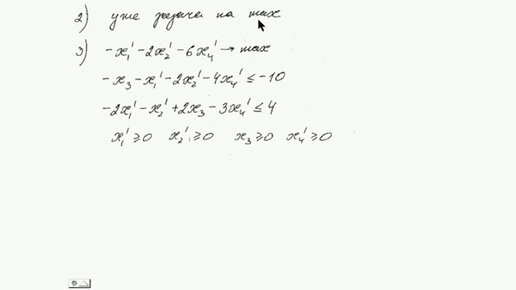 2) уже задача на max
3) -x₁' - 2x₂' - 6x₄' → max
-x₃ - x₁' - 2x₂' - 4x₄' ≤ -10
-2x₁' - x₂' + 2x₃ - 3x₄' ≤ 4
x₁' ≥ 0 x₂' ≥ 0 x₃ ≥ 0 x₄' ≥ 0